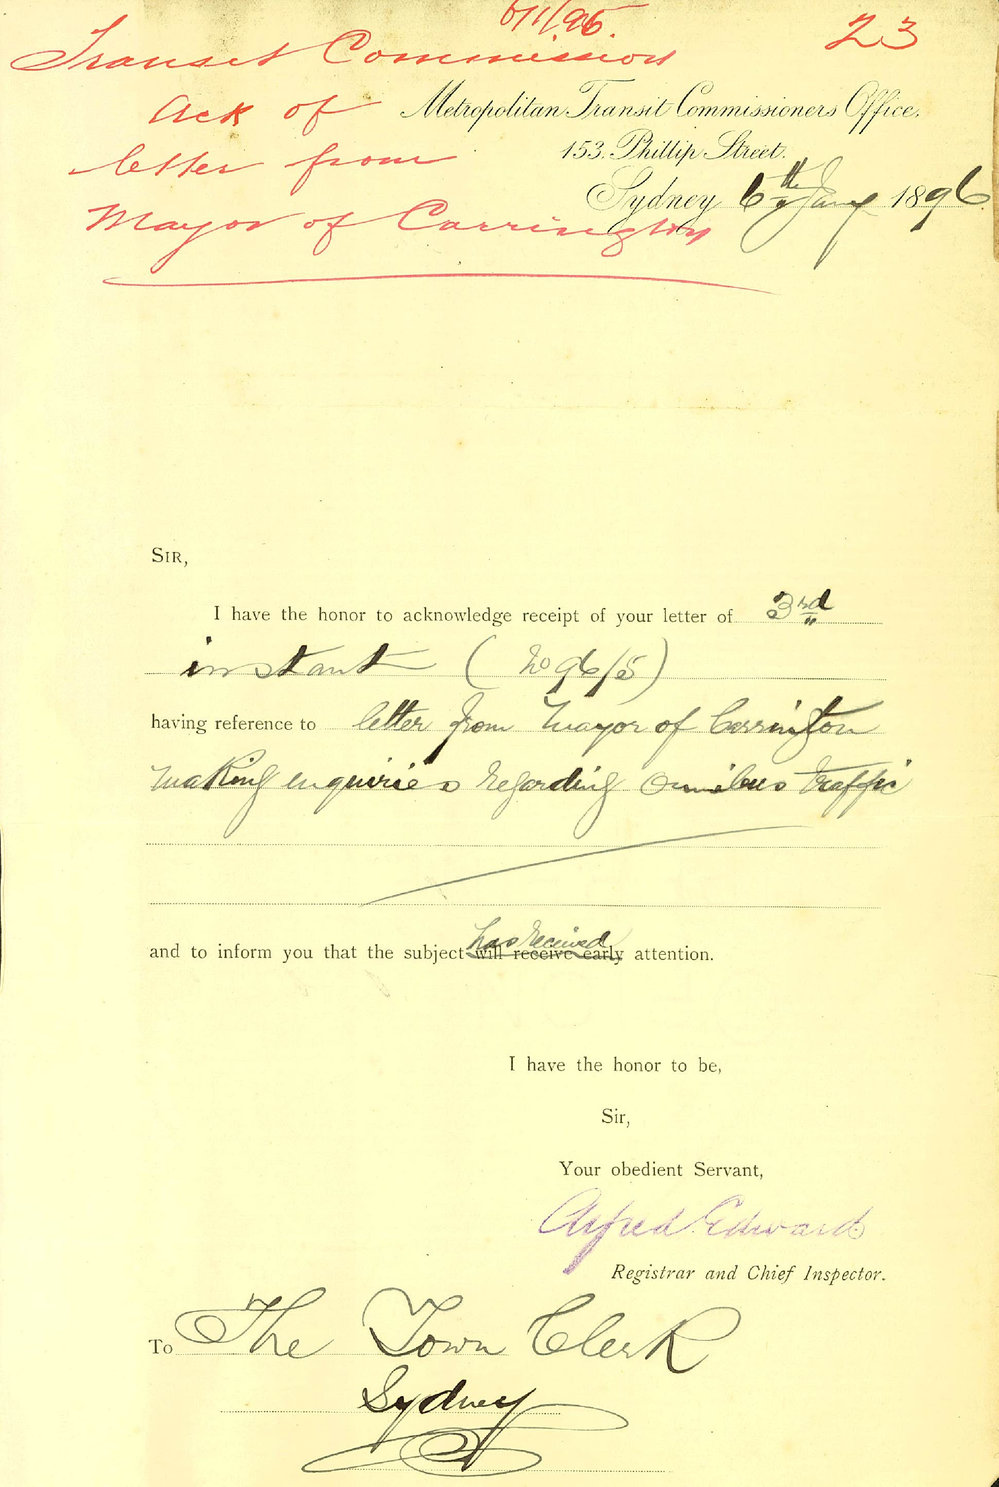 6/1/96.
23
Transit Commission
Ack of
letter from
Mayor of Carrington
Metropolitan Transit Commissioners Office.
153. Phillip Street.
Sydney 6th Jany 1896
SIR,
I have the honor to acknowledge receipt of your letter of 3rd
instant (No 96/5)
having reference to letter from Mayor of Carrington
making enquiries regarding Omnibus traffic
has received
and to inform you that the subject will receive early attention.
I have the honor to be,
Sir,
Your obedient Servant,
Alfred Edward
Registrar and Chief Inspector.
To The Town Clerk
Sydney